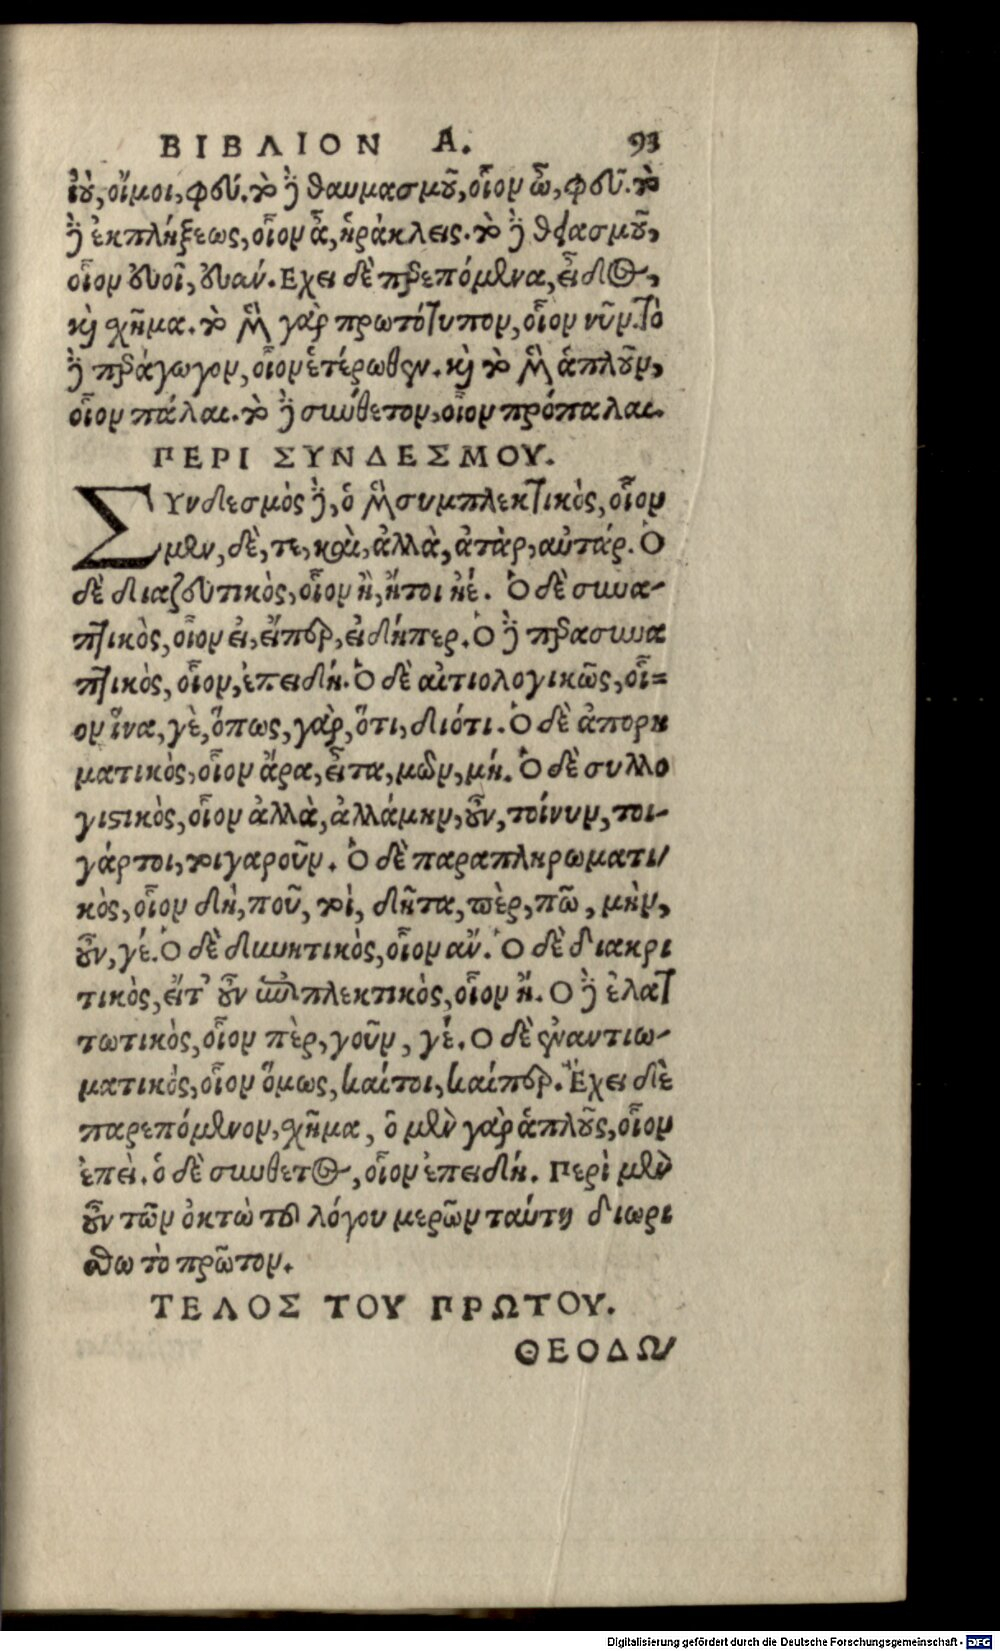 ΒΙΒΛΙΟΝ Α. 93
ἰοὺ, οἴμοι, φεύ. τὸ δὲ θαυμασμοῦ, οἷον ὦ, φεῦ. τὸ
δὲ ἐκπλήξεως, οἷον ἆ, ἡράκλεις. τὸ δὲ θειασμοῦ,
οἷον εὐοῖ, εὐάν. Εχει δὲ παρεπόμενα, εἶδος,
καὶ σχῆμα. τὸ μὲν γὰρ πρωτότυπον, οἷον νῦν. τὸ
δὲ παράγωγον, οἷον ἑτέρωθεν. καὶ τὸ μὲν ἁπλοῦν,
οἷον πάλαι. τὸ δὲ σύνθετον, οἷον πρόπαλαι.
ΠΕΡΙ ΣΥΝΔΕΣΜΟΥ.
ΣΥνδεσμὸς δὲ, ὁ μὲν συμπλεκτικὸς, οἷον
μὲν, δὲ, τε, καὶ, ἀλλὰ, ἀτὰρ, αὐτάρ. Ὁ
δὲ διαζευτικὸς, οἷον ἢ, ἤτοι ἠέ. Ὁ δὲ συνα-
πτικὸς, οἷον εἰ, εἴπερ, εἰδήπερ. Ὁ δὲ παρασυνα
πτικὸς, οἷον, ἐπειδή. Ὁ δὲ αἰτιολογικῶς, οἷ=
ον ἵνα, γὲ, ὅπως, γὰρ, ὅτι, διότι. Ὁ δὲ ἀπορη
ματικὸς, οἷον ἄρα, εἶτα, μῶν, μή. Ὁ δὲ συλλο
γιστικὸς, οἷον ἀλλὰ, ἀλλάμην, οὖν, τοίνυν, τοι-
γάρτοι, τοιγαροῦν. Ὁ δὲ παραπληρωματι/
κὸς, οἷον δὴ, ποῦ, τοὶ, δῆτα, πὲρ, πῶ, μὴν,
οὖν, γέ. Ὁ δὲ δυνητικὸς, οἷον αν. Ὁ δὲ διακρι
τικὸς, εἴτ' οὖν περιπλεκτικὸς, οἷον ἤ. Ο δὲ ἐλατ
τωτικὸς, οἷον πὲρ, γοῦν, γέ. Ο δὲ ἐναντιω-
ματικὸς, οἷον ὅμως, καίτοι, καίπερ. Ἔχει δὲ
παρεπόμενον, σχῆμα, ὃ μὲν γὰρ ἁπλοῦς, οἷον
ἐπεὶ. ὁ δὲ συνθετος, οἷον ἐπειδή. Περὶ μὲν
οὖν τῶν ὀκτὼ τοῦ λόγου μερῶν ταύτῃ διωρι
σθω τὸ πρῶτον.
ΤΕΛΟΣ ΤΟΥ ΠΡΩΤΟΥ.
ΘΕΟΔΩ/
Digitalisierung gefördert durch die Deutsche Forschungsgemeinschaft - DFG